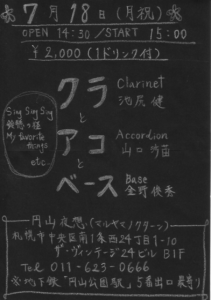 7月18日(月祝)
OPEN 14:30 / START 15:00
¥2,000(1ドリンク付)
クラ Clarinet
池原 健
と
アコ Accordion
山口 沙苗
と
ベース Base
金野 俊秀
Sing Sing Sing
My favorite
things
etc...
円山夜想(マルヤマノクターン)
札幌市中央区南1条西24丁目1-10
ザ・ヴィンテージ24ビル B1F
Tel 011-623-0666
※地下鉄「円山公園駅」5番出口最寄り